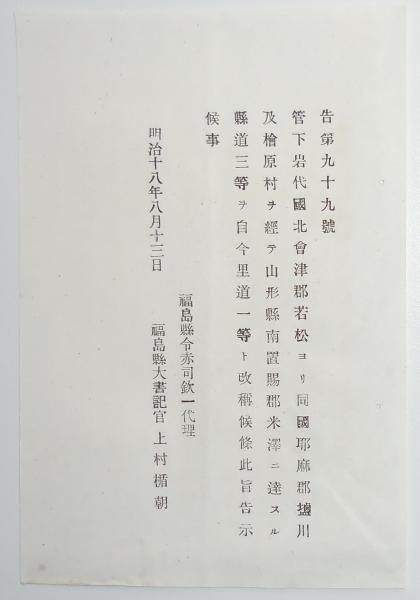 告第九十九號
管下岩代國北會津郡若松ヨリ同國耶麻郡鹽川
及檜原村ヲ經テ山形縣南置賜郡米澤ニ達スル
縣道三等ヲ自今里道一等ト改稱候條此旨告示
候事
明治十八年八月十三日
福島縣令赤司欽一代理
福島縣大書記官 上村楯朝